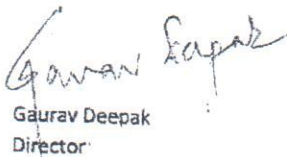 Gaurav Deepak
Gaurav Deepak
Director